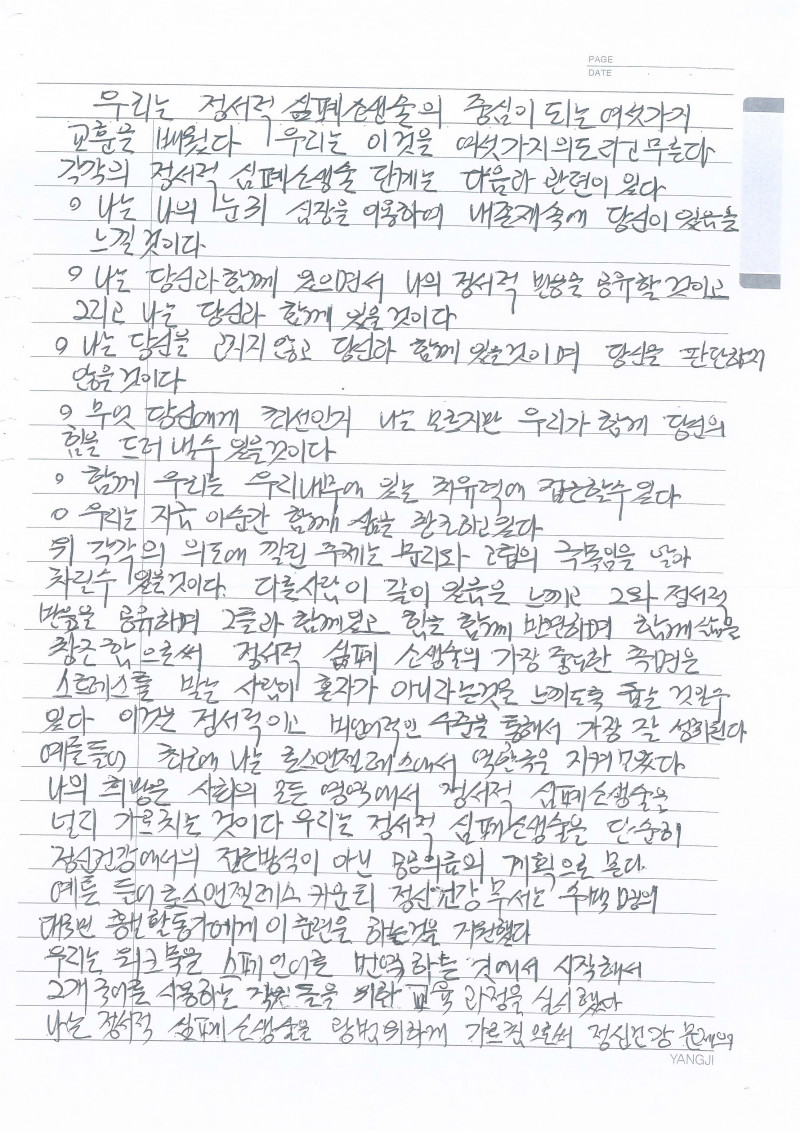 PAGE
DATE
우리는 정서적 심폐소생술의 중심이 되는 여섯가지
교훈을 배웠다 우리는 이것을 여섯가지의도라고부른다
각각의 정서적 심폐소생술 단계는 다음과 관련이 있다
나는 나의 눈과 심장을 이용하여 내존재속에 당신이 있음을
느낄것이다
나는 당신과함께 있으면서 나의 정서적 반응을 공유할것이고
그리고 나는 당신과 함께 있을것이다
나는 당신을 고치지 않고 당신과 함께 있을것이며 당신을 판단하지
않을것이다
무엇 당신에게 최선인지 나는 모르지만 우리가 함께 당신의
힘을 드러낼수 있을것이다
함께 우리는 우리내부에 있는 치유력에 접근할수있다
우리는 지금 이순간 함께 삶을 창조하고있다
위 각각의 의도에 깔린 주제는 분리와 고립의 극복임을 알아
차릴수 있을것이다. 다른사람이 같이 있음을 느끼고 그와 정서적
반응을 공유하며 그들과 함께있고 힘을 함께 발견하며 함께 삶을
창조함으로써 정서적 심폐 소생술의 가장 중요한 측면은
스트레스를 받는 사람이 혼자가 아니라는것을 느끼도록 돕는 것일수
있다 이것은 정서적이고 비언어적인 수준을 통해서 가장 잘 성취된다
예를들어 최근에 나는 로스앤젤레스에서 역할극을 지켜 보았다
나의 희망은 사회의 모든 영역에서 정서적 심폐소생술을
널리 가르치는 것이다 우리는 정서적 심폐소생술을 단순히
정신건강에서의 접근방식이 아닌 공공의료의 계획으로 본다
예를 들어 로스앤젤레스 카운티 정신건강 부서는 수백 명의
대로변 출발활동가에게 이 훈련을 하는것을 지원했다
우리는 워크북을 스페인어로 번역하는 것에서 시작해서
2개 국어를 사용하는 직원들을 위한 교육 과정을 실시했다
나는 정서적 심폐소생술을 광범위하게 가르침으로써 정신건강 문제의
YANGJI